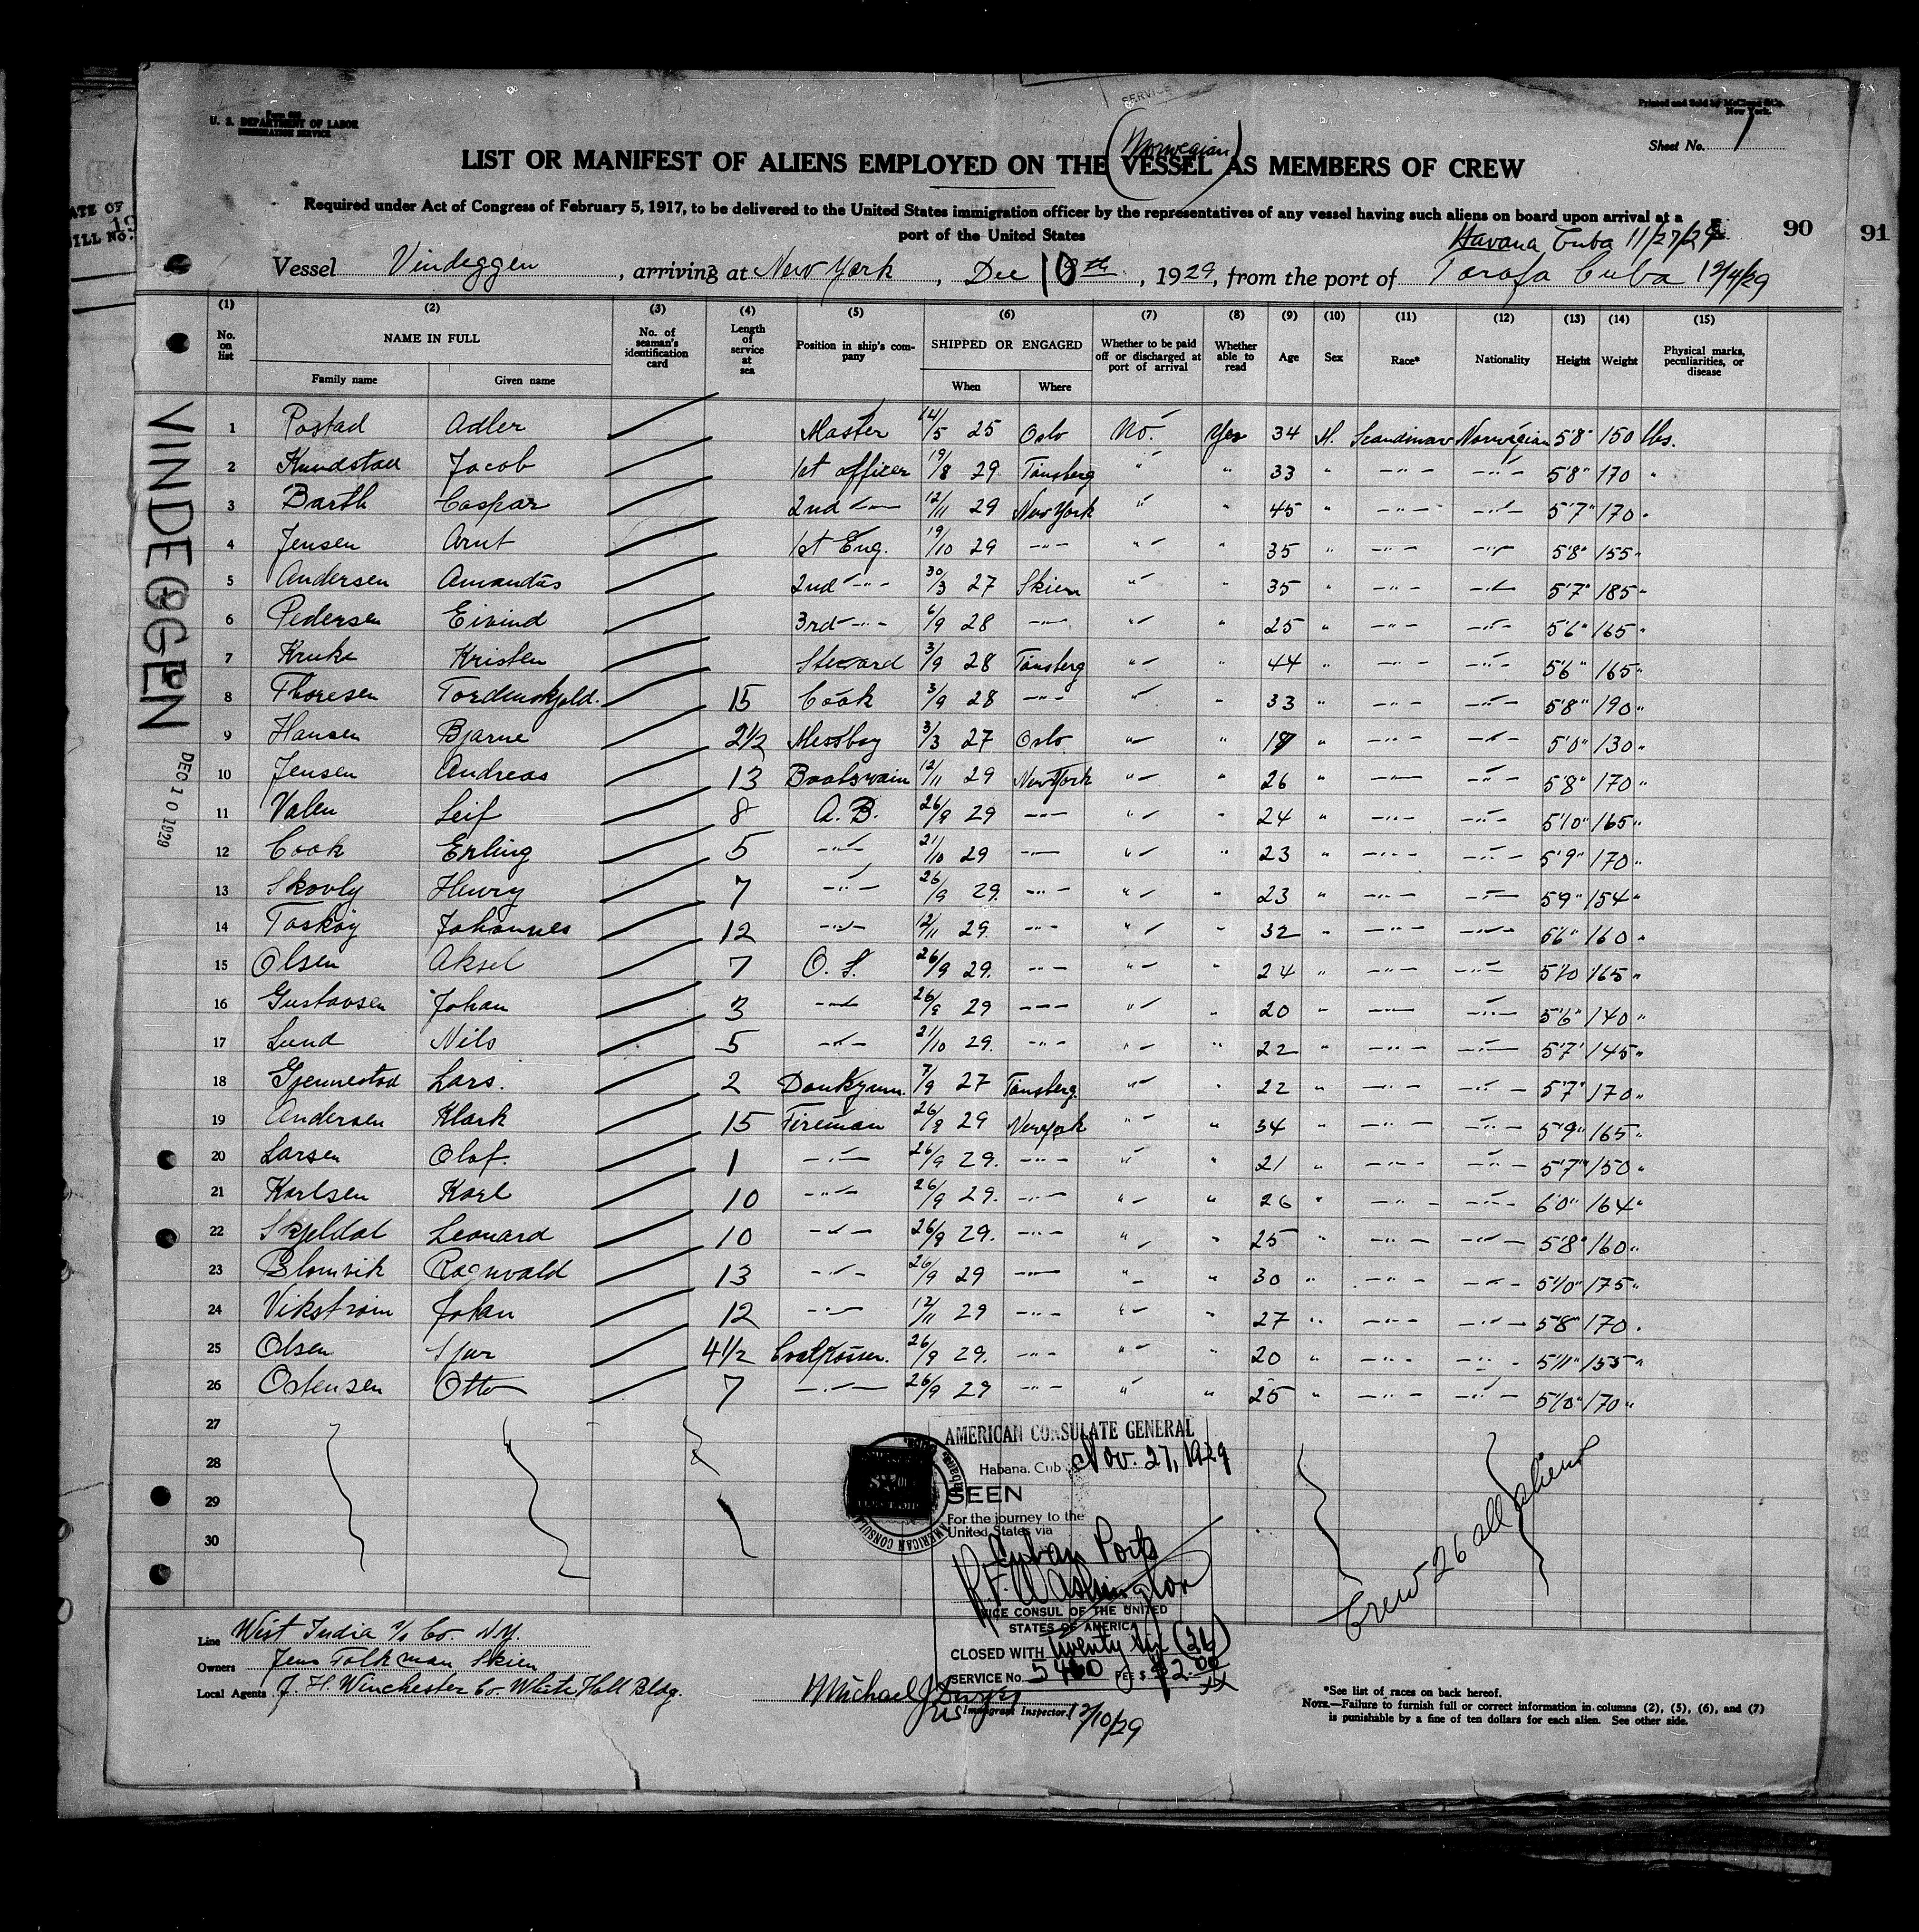 Form 689
U. S. DEPARTMENT OF LABOR
IMMIGRATION SERVICE
SERVICE
Printed and Sold by McClung & Co.
New York.
Sheet No. 1
(Norwegian)
LIST OR MANIFEST OF ALIENS EMPLOYED ON THE VESSEL AS MEMBERS OF CREW
Required under Act of Congress of February 5, 1917, to be delivered to the United States immigration officer by the representatives of any vessel having such aliens on board upon arrival at a
port of the United States
90 91
Havana Cuba 11/27/29
Vessel Vindeggen, arriving at New York, Dec 10th, 1929, from the port of Tarafa Cuba 12/4/29
(1) (2) (3) (4) (5) (6) (7) (8) (9) (10) (11) (12) (13) (14) (15)
No. on list NAME IN FULL No. of seaman's identification card Length of service at sea Position in ship's company SHIPPED OR ENGAGED Whether to be paid off or discharged at port of arrival Whether able to read Age Sex Race* Nationality Height Weight Physical marks, peculiarities, or disease
Family name Given name When Where
1 Rostad Adler Master 14/5 25 Oslo No. Yes 34 M. Scandinav Norwegian 5'8" 150 lbs.
2 Jacob 1st officer 19/8 29 Tönsberg " " 33 " -"- -"- 5'8" 170 "
3 Barth Caspar 2nd -"- 12/11 29 New York " " 45 " -"- -"- 5'7" 170 "
4 Jensen Arnt 1st Eng. 19/10 29 -"- " " 35 " -"- -"- 5'8" 155 "
5 Andersen Amandus 2nd -"- 30/3 27 Skien " " 35 " -"- -"- 5'7" 185 "
6 Pedersen Eivind 3rd -"- 6/9 28 -"- " " 25 " -"- -"- 5'6" 165 "
7 Kruke Kristen Steward 3/9 28 Tönsberg " " 44 " -"- -"- 5'6" 165 "
8 Thoresen Tordenskjold. 15 Cook 3/9 28 -"- " " 33 " -"- -"- 5'8" 190 "
9 Hansen Bjarne 2 1/2 Messboy 3/3 27 Oslo " " " -"- -"- 5'0" 130 "
10 Jensen Andreas 13 Boatswain 12/11 29 New York " " 26 " -"- -"- 5'8" 170 "
11 Valen Leif 8 A. B. 26/9 29 -"- " " 24 " -"- -"- 5'10" 165 "
12 Cook Erling 5 -"- 21/10 29 -"- " " 23 " -"- -"- 5'9" 170 "
13 Skovly Henry 7 -"- 26/9 29. -"- " " 23 " -"- -"- 5'9" 154 "
14 Taskoy Johannes 12 -"- 12/11 29. -"- " " 32 " -"- -"- 5'6" 160 "
15 Olsen Aksel 7 O. S. 26/9 29. -"- " " 24 " -"- -"- 5'10 165 "
16 Gustavsen Johan 3 -"- 26/9 29 -"- " " 20 " -"- -"- 5'6" 140 "
17 Lund Nils 5 -"- 21/10 29. -"- " " 22 " -"- -"- 5'7" 145 "
18 Gjennestad Lars. 2 Donkymn. 7/9 27 Tönsberg. " " 22 " -"- -"- 5'7" 170 "
19 Andersen Klark 15 Fireman 26/9 29 New york " " 34 " -"- -"- 5'9" 165 "
20 Larsen Olof. 1 -"- 26/9 29. -"- " " 21 " -"- -"- 5'7" 150 "
21 Karlsen Karl 10 -"- 26/9 29. -"- " " 26 " -"- -"- 6'0" 164 "
22 Skjeldal Leonard 10 -"- 26/9 29. -"- " " 25 " -"- -"- 5'8" 160 "
23 Blomvik Ragnvald 13 -"- 26/9 29 -"- " " 30 " -"- -"- 5'10" 175 "
24 Vikstrøm Johan 12 -"- 12/11 29 -"- " " 27 " -"- -"- 5'8" 170 "
25 Olsen 4 1/2 26/9 29. -"- " " 20 " -"- -"- 5'11" 155 "
26 Ostensen Otto 7 -"- 26/9 29 -"- " " 25 " -"- -"- 5'10" 170 "
27
28
29
30
VINDEGGEN
DEC 10 1929
AMERICAN CONSULATE GENERAL
Habana, Cuba Nov. 27, 1929
SEEN
For the journey to the
United States via
Cuban Ports
VICE CONSUL OF THE UNITED
STATES OF AMERICA
CLOSED WITH Twenty Six (26)
SERVICE No. 5460 FEE $ $2.00
Crew 26 all aliens
Line West India S/S Co. N.Y.
Owners Jens Folkman Skien
Local Agents J. H. Winchester Co. White Hall Bldg.
Michael J.
Immigrant Inspector. 12/10/29
*See list of races on back hereof.
NOTE.—Failure to furnish full or correct information in columns (2), (5), (6), and (7)
is punishable by a fine of ten dollars for each alien. See other side.